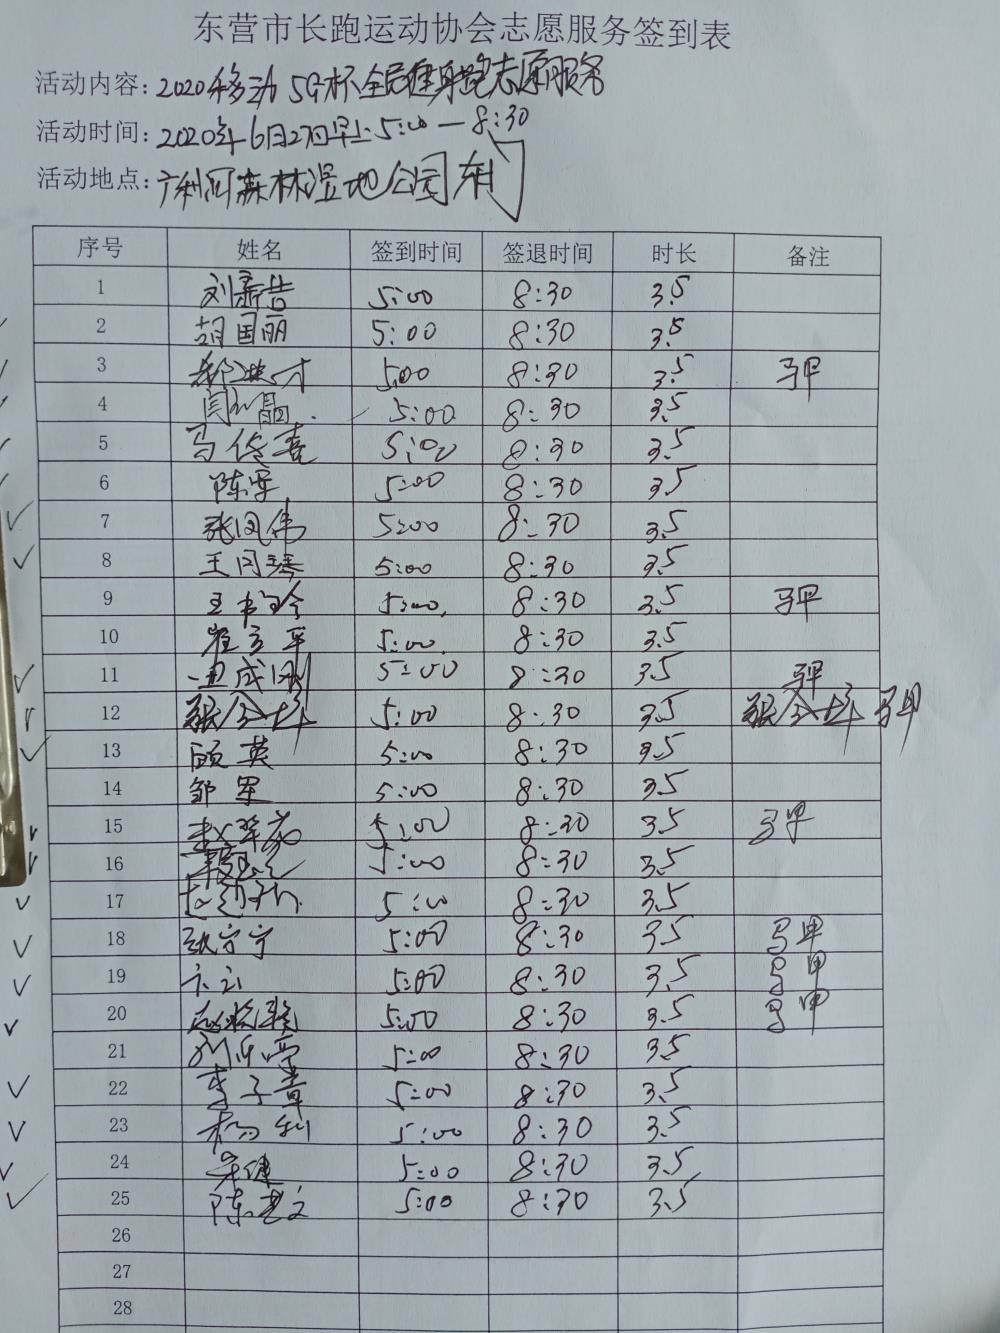 东营市长跑运动协会志愿服务签到表
活动内容：2020移动5G杯全民健身跑志愿服务
活动时间：2020年6月27日早上5:00—8:30
活动地点：广利河森林湿地公园东门
序号 姓名 签到时间 签退时间 时长 备注
1 刘新吉 5:00 8:30 3.5
2 胡国丽 5:00 8:30 3.5
3 5:00 8:30 3.5 马甲
4 5:00 8:30 3.5
5 马传喜 5:00 8:30 3.5
6 陈军 5:00 8:30 3.5
7 张凤伟 5:00 8:30 3.5
8 王同琴 5:00 8:30 3.5
9 王书玲 5:00 8:30 3.5 马甲
10 崔立平 5:00 8:30 3.5
11 成刚 5:00 8:30 3.5 马甲
12 张全峰 5:00 8:30 3.5 张全峰 马甲
13 顾英 5:00 8:30 3.5
14 邹军 5:00 8:30 3.5
15 5:00 8:30 3.5 马甲
16 5:00 8:30 3.5
17 5:00 8:30 3.5
18 张宁宁 5:00 8:30 3.5 马甲
19 5:00 8:30 3.5 马甲
20 5:00 8:30 3.5 马甲
21 5:00 8:30 3.5
22 李子章 5:00 8:30 3.5
23 杨利 5:00 8:30 3.5
24 宋健 5:00 8:30 3.5
25 陈 5:00 8:30 3.5
26
27
28